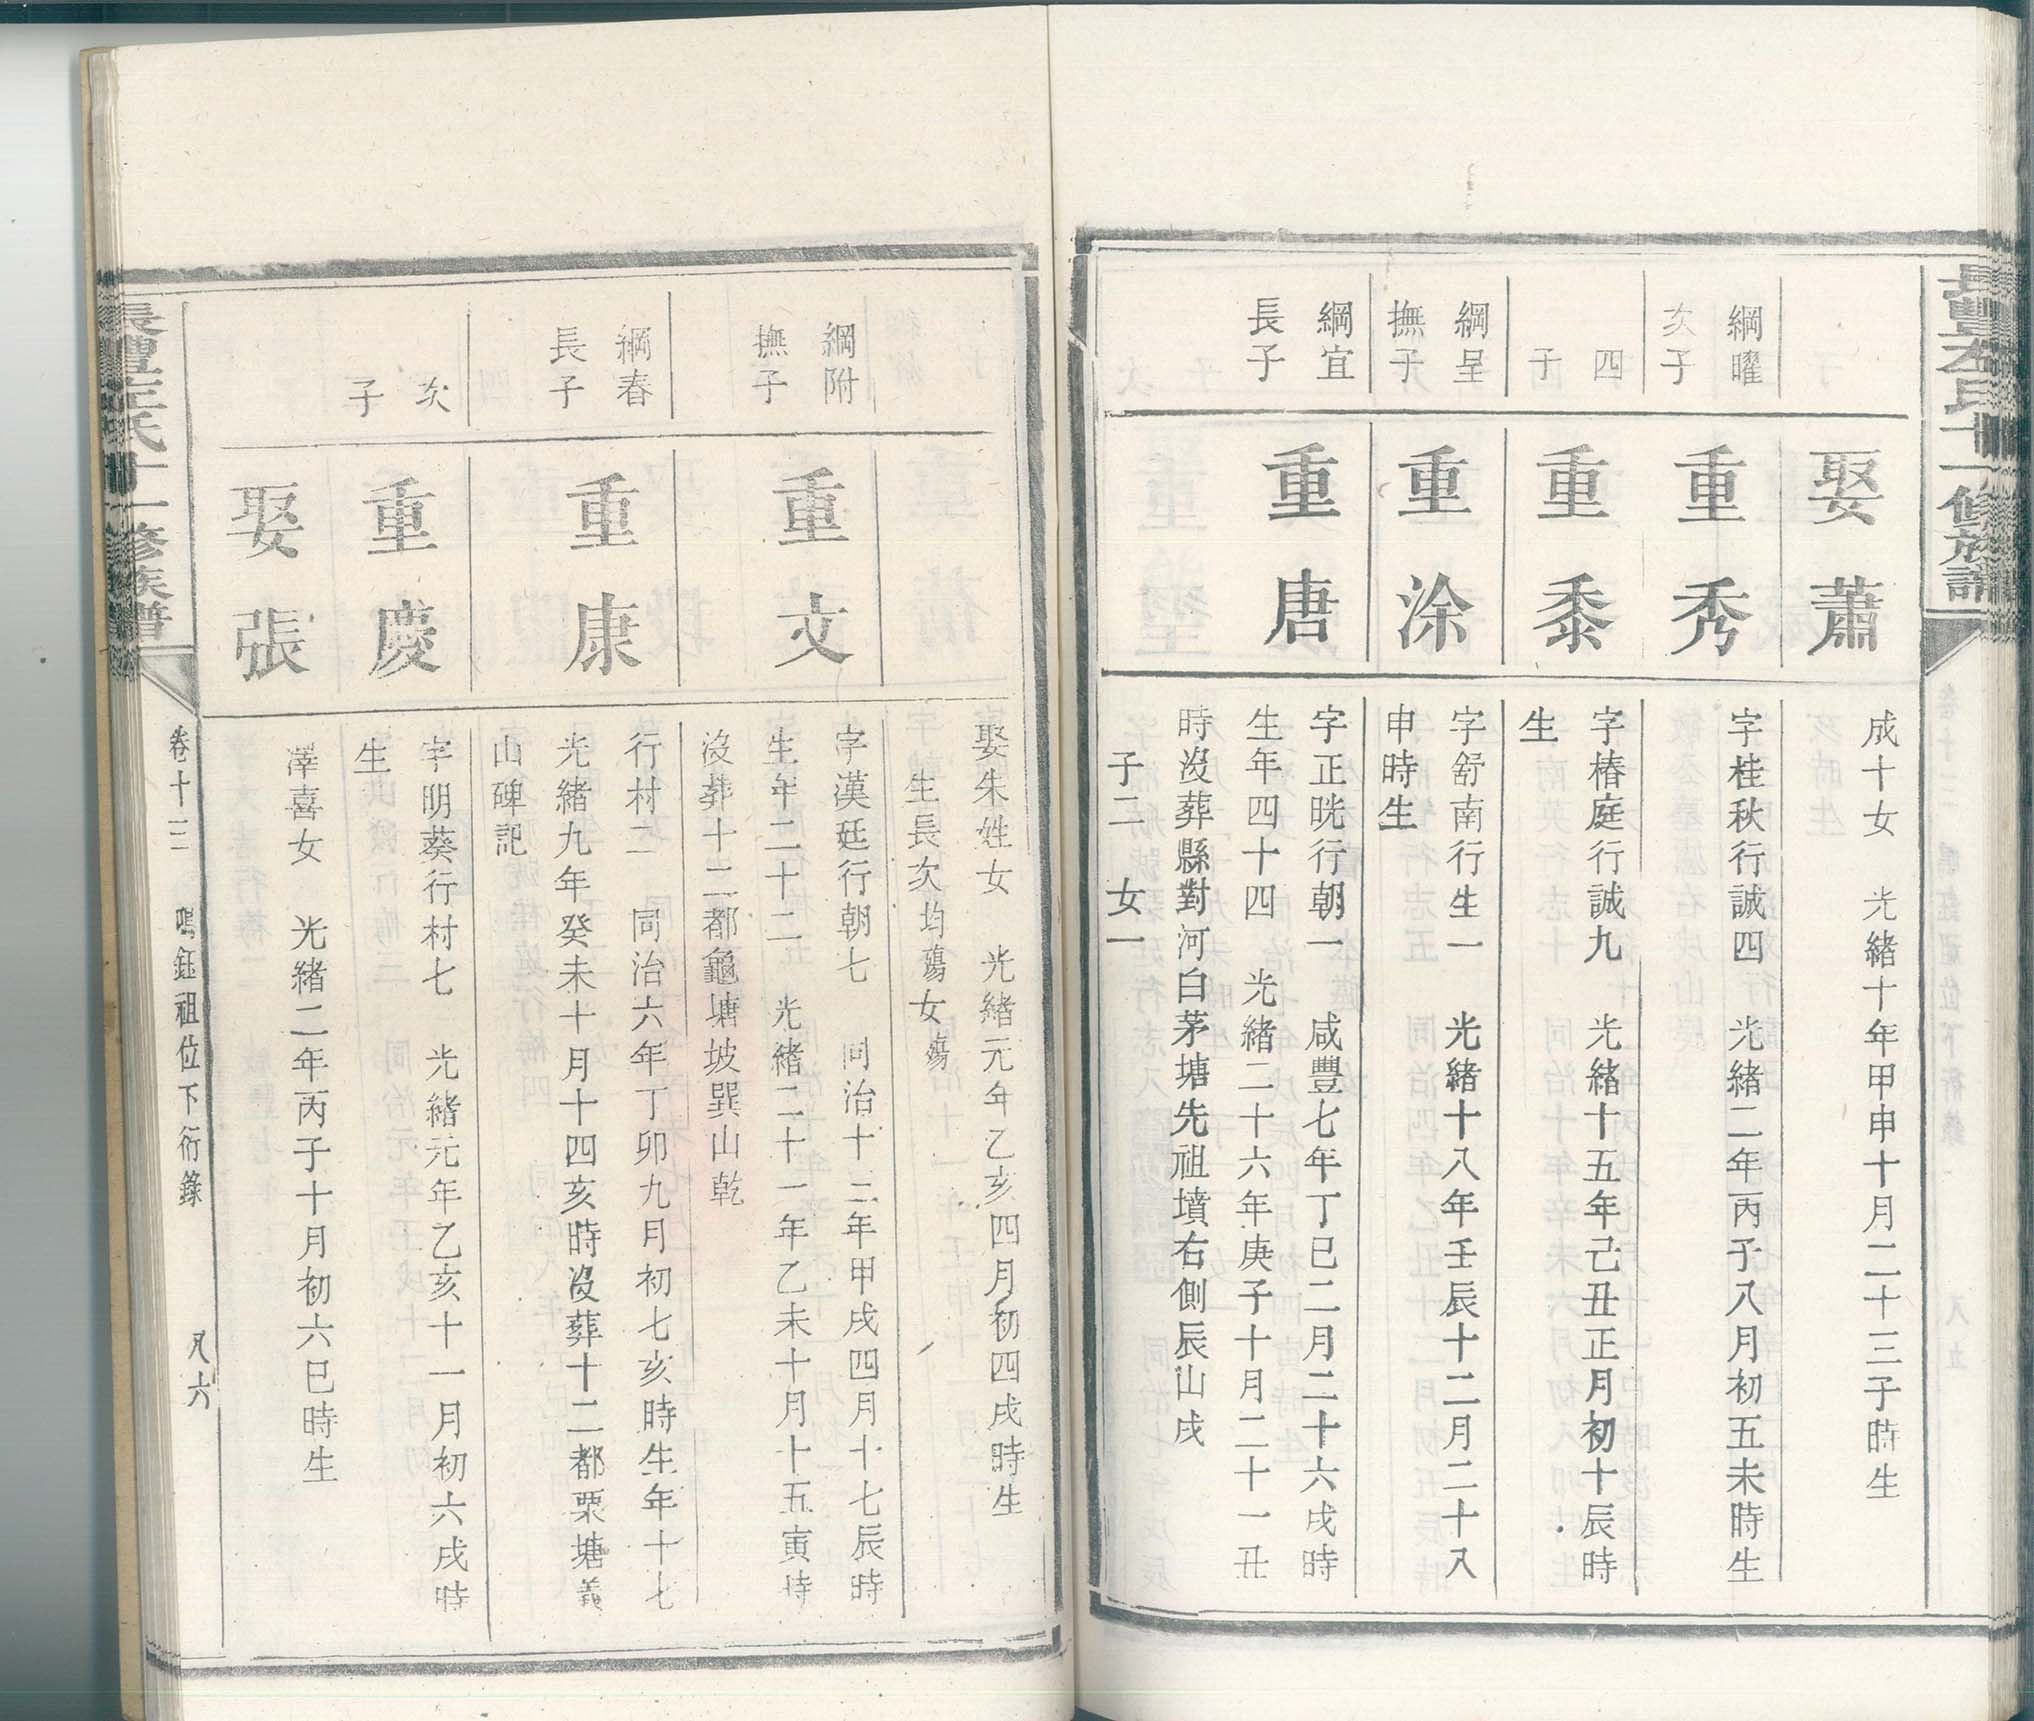 長豐左氏十一修族譜
娶蕭
成十女　光緒十年甲申十月二十三子時生
綱曜
次子
重秀
字桂秋行誠四　光緒二年丙子八月初五未時生
四
子
重黍
字椿庭行誠九　光緒十五年己丑正月初十辰時
生
綱呈
撫子
重涂
字舒南行生一　光緒十八年壬辰十二月二十八
申時生
綱宜
長子
重唐
字正晄行朝一　咸豐七年丁巳二月二十六戌時
生年四十四　光緒二十六年庚子十月二十一丑
時沒葬縣對河白茅塘先祖墳右側辰山戌
子二　女一
娶朱姓女　光緒元年乙亥四月初四戌時生
生長次均殤女殤
綱附
撫子
重文
字漢廷行朝七　同治十三年甲戌四月十七辰時
生年二十二　光緒二十一年乙未十月十五寅時
沒葬十二都龜塘坡巽山乾
綱春
長子
重康
行村二　同治六年丁卯九月初七亥時生年十七
光緒九年癸未十月十四亥時沒葬十二都栗塘義
山碑記
次
子
重慶
字明葵行村七　光緒元年乙亥十一月初六戌時
生
娶張
澤喜女　光緒二年丙子十月初六巳時生
長豐左氏十一修族譜
卷十三　鳴鈺祖位下衍錄　八六